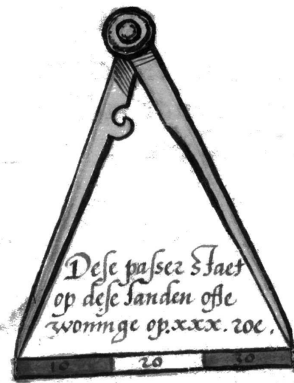 Dese passer staet
op dese landen ofte
woninge op. xxx. roe.
10 20 30